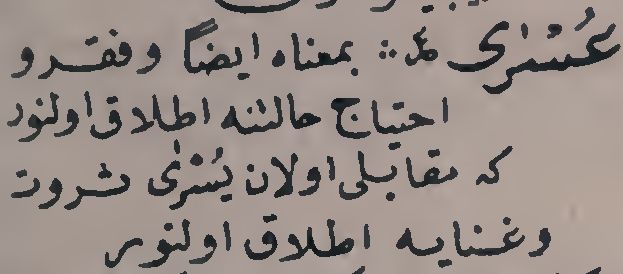 عُسْرٰى ع‍ :: بمعناه ايضاً وفقر و
احتياج حالتنه اطلاق اولنور
كه مقابلى اولان يُسْرٰى ثروت
وغنايه اطلاق اولنور